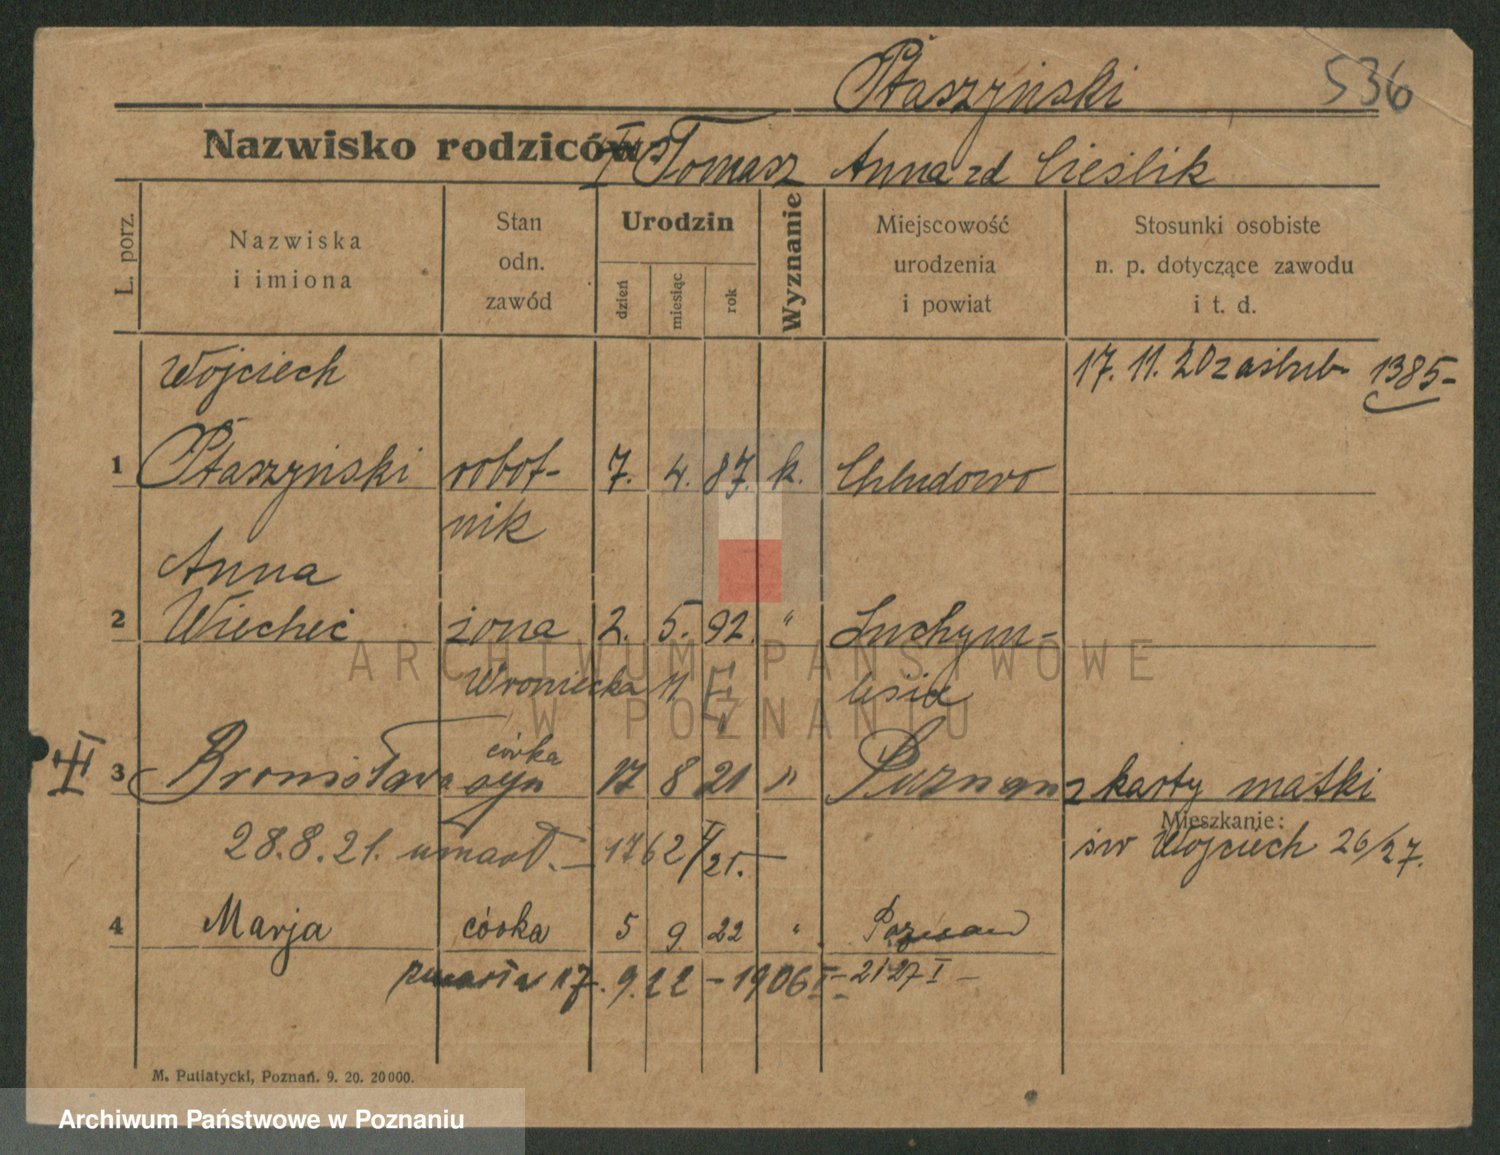 Ptaszyński 536
Nazwisko rodziców Tomasz Anna zd Cieślik
L. porz.
Nazwiska
i imiona
Stan
odn.
zawód
Urodzin
dzień
miesiąc
rok
Wyznanie
Miejscowość
urodzenia
i powiat
Stosunki osobiste
n. p. dotyczące zawodu
i t. d.
Wojciech 17. 11. 20 zaślub. 1385-
1 Ptaszyński robot- 7. 4. 87. k. Chludowo
nik
Anna
2 Wiecheć żona 2. 5. 92. " Suchym-
Wroniecka 11
córka
3 Bronisława syn 17 8 21 " Poznan z karty matki
Mieszkanie:
28.8.21. umarł. - 1762/V 21. św Wojciech 26/27.
4 Marja córka 5 9 22 " Poznań
zmarła 17. 9. 22 - 1906 I - 2127 I -
M. Putiatycki, Poznań. 9. 20. 20000.
ARCHIWUM PAŃSTWOWE
W POZNANIU
Archiwum Państwowe w Poznaniu